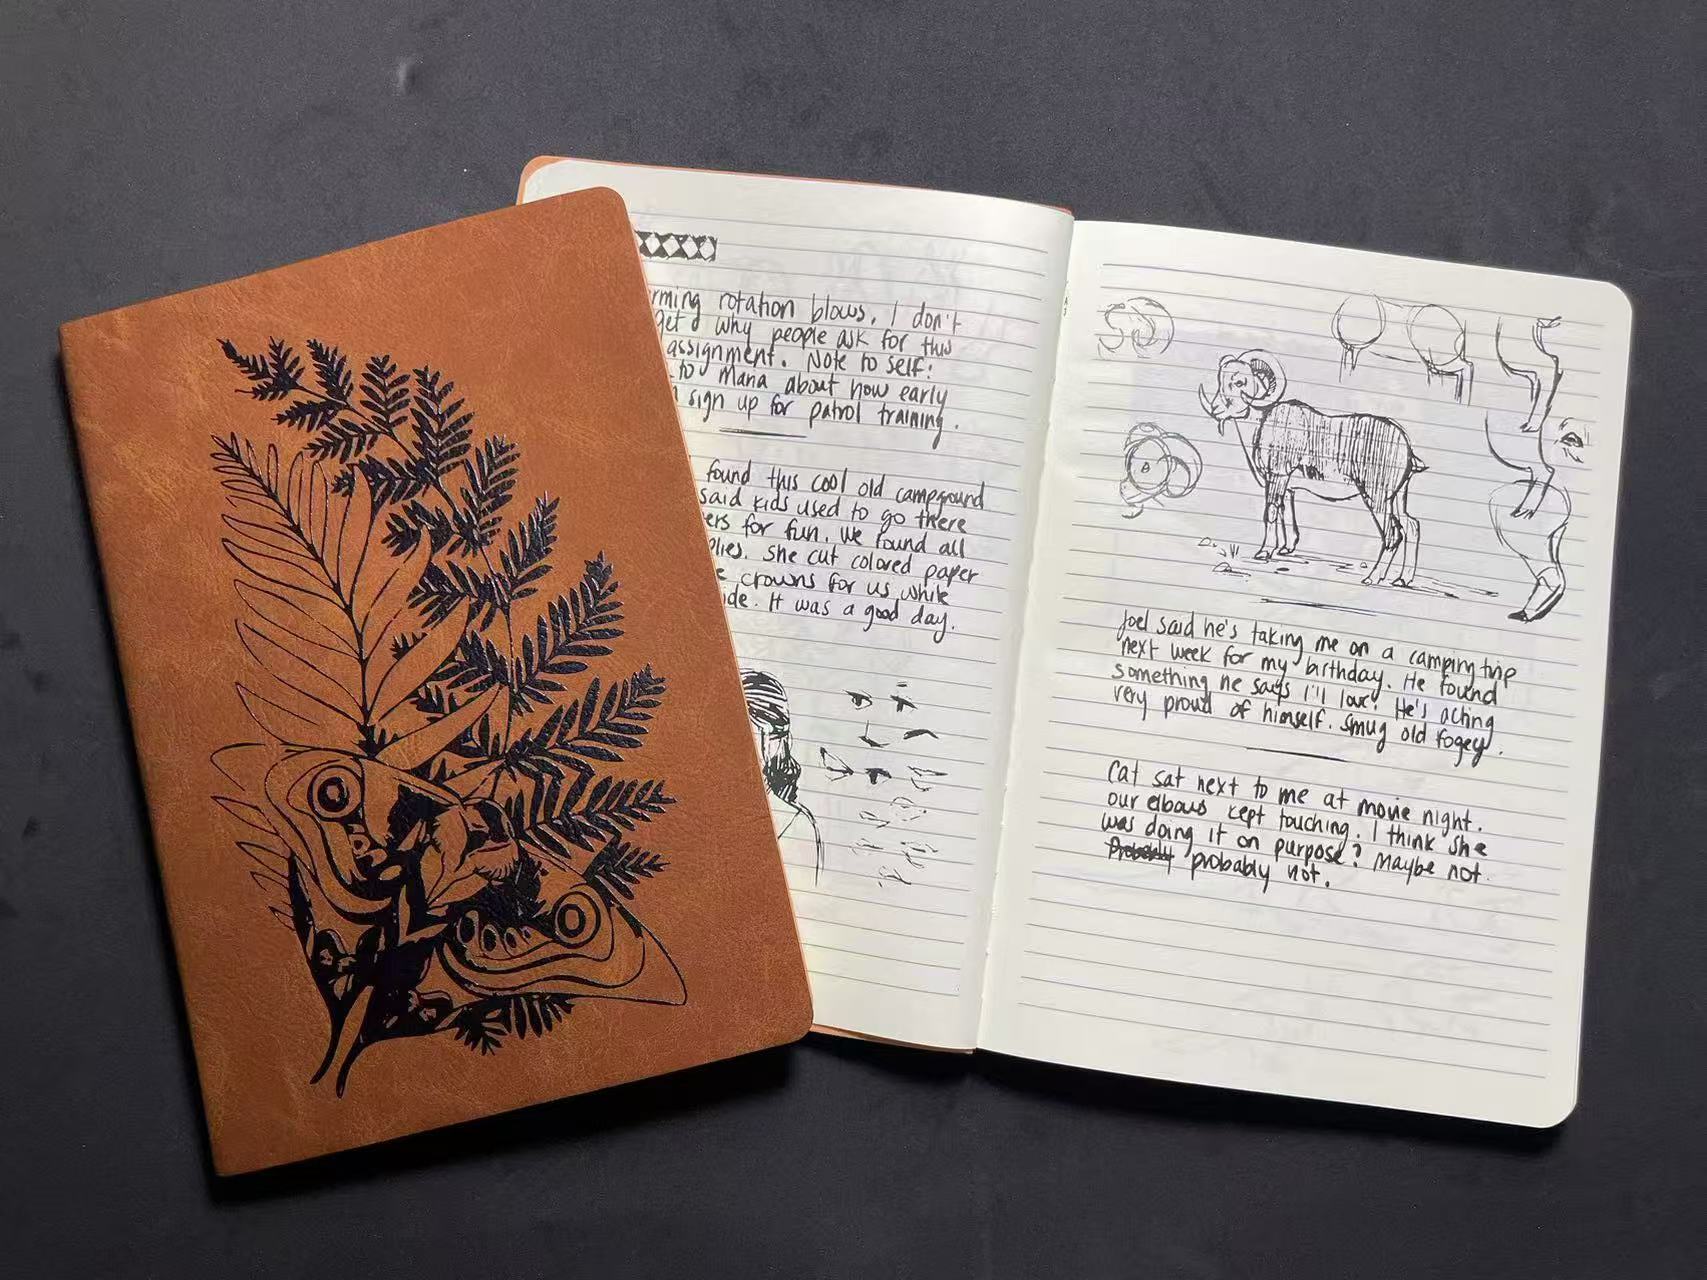 rming rotation blows. I don't
get why people ask for this
assignment. Note to self:
to Maria about how early
sign up for patrol training.
found this cool old campground
said kids used to go there
ers for fun. We found all
plies. She cut colored paper
e crowns for us while
ide. It was a good day.
Joel said he's taking me on a camping trip
next week for my birthday. He found
something he says I'll love. He's acting
very proud of himself. Smug old fogey.
Cat sat next to me at movie night.
our elbows kept touching. I think she
was doing it on purpose? Maybe not.
Probably probably not.